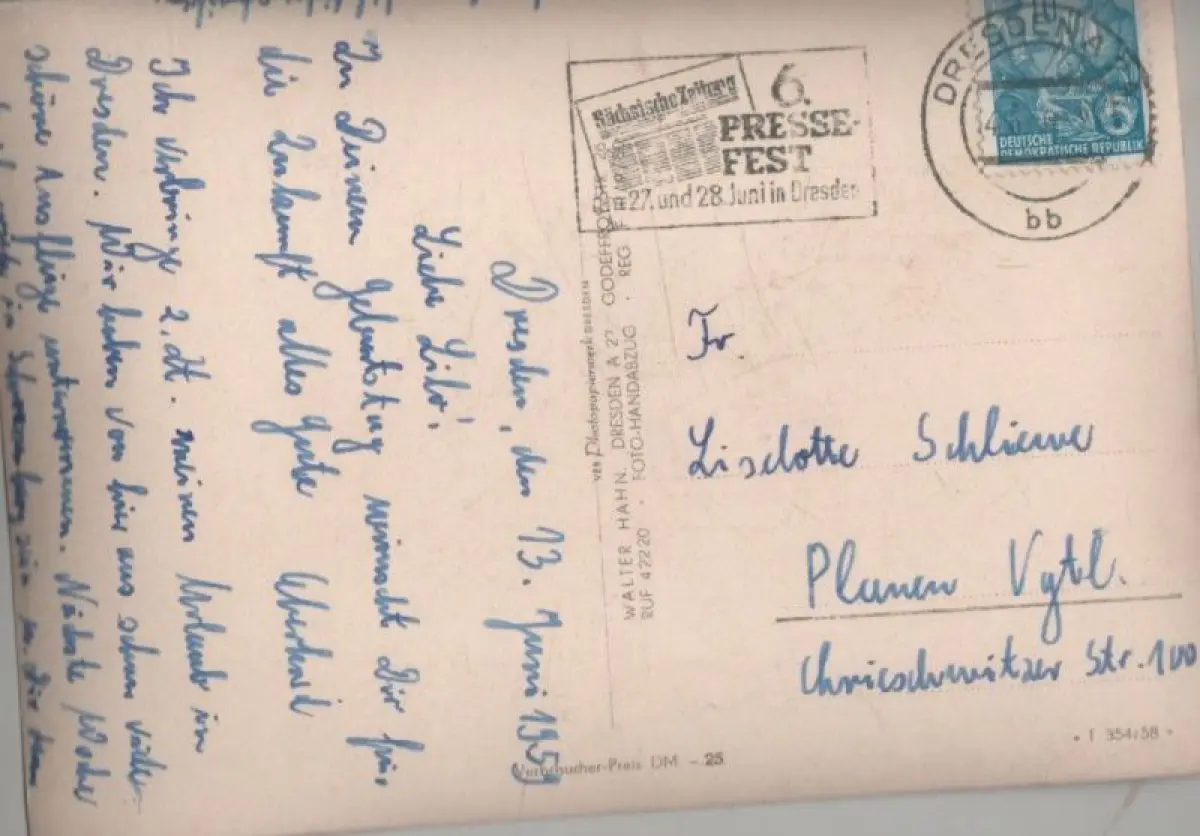 Dresden, den 13. Juni 1959
Liebe Lilo!
Zu Deinem Geburtstag wünscht Dir für
die Zukunft alles Gute Eberhard
Ich verbringe z. Zt. meinen Urlaub in
Dresden. Wir haben von hier aus schon
schöne Ausflüge unternommen. Nächste Woche
VEB Photopapierwerk DRESDEN
WALTER HAHN, DRESDEN A 27
RUF 42220 · FOTO-HANDABZUG · REG
Sächsische Zeitung
6.
PRESSE-
FEST
27. und 28. Juni in Dresden
DRESDEN A
bb
6
DEUTSCHE
DEMOKRATISCHE REPUBLIK
Fr.
Liselotte Schlieme
Plauen Vgtl.
Chrieschwitzer Str. 100
Verbraucher-Preis DM -.25
· T 354/58 ·